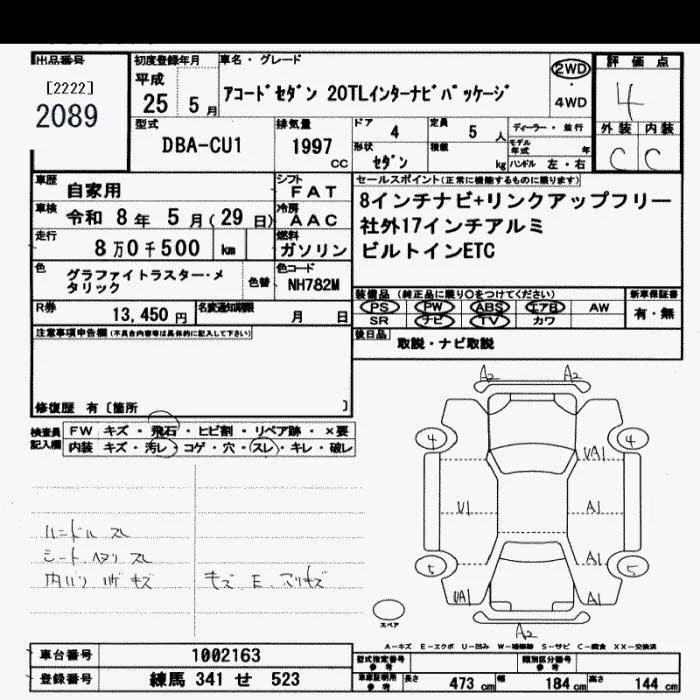 出品番号
[2222]
2089
初度登録年月
平成
25 5月
車名・グレード
アコードセダン 20TLインターナビパッケージ
2WD
・
4WD
評価点
4
外装 内装
C C
型式
DBA-CU1
排気量
1997 cc
ドア 4
定員 5 人
ディーラー・並行
モデル年式 年
形状 セダン
積載 kg
ハンドル 左・右
車歴 自家用
シフト FAT
車検 令和 8年 5月(29日)
冷房 AAC
走行 8万0千500 km
燃料 ガソリン
色 グラファイトラスター・メタリック
色替
色コード NH782M
R券 13,450円
名変通知期限 月 日
セールスポイント(正常に機能するものに限ります)
8インチナビ+リンクアップフリー
社外17インチアルミ
ビルトインETC
装備品 (純正品に限り○をつけてください)
新車保証書
PS PW ABS エアB AW
有・無
SR ナビ TV カワ
後日品 取説・ナビ取説
注意事項申告欄(不具合内容等は具体的に記入して下さい)
修復歴 有〔箇所 〕
検査員記入欄
FW キズ・飛石・ヒビ割・リペア跡・×要
内装 キズ・汚レ・コゲ・穴・スレ・キレ・破レ
ハンドル スレ
シート ヘタリ スレ
内バリ ハゲ キズ
キズ、E、スリキズ
A2 A2
4 4
UA1
U1 A1
A1
5 5
UA1 A1
A2
スペア
A-キズ E-エクボ U-凹み W-補修跡 S-サビ C-腐食 XX-交換済
車台番号 1002163
登録番号 練馬 341 せ 523
型式指定番号 参考
類別区分番号 参考
車庫証明用 参考
長さ 473 cm 幅 184 cm 高さ 144 cm